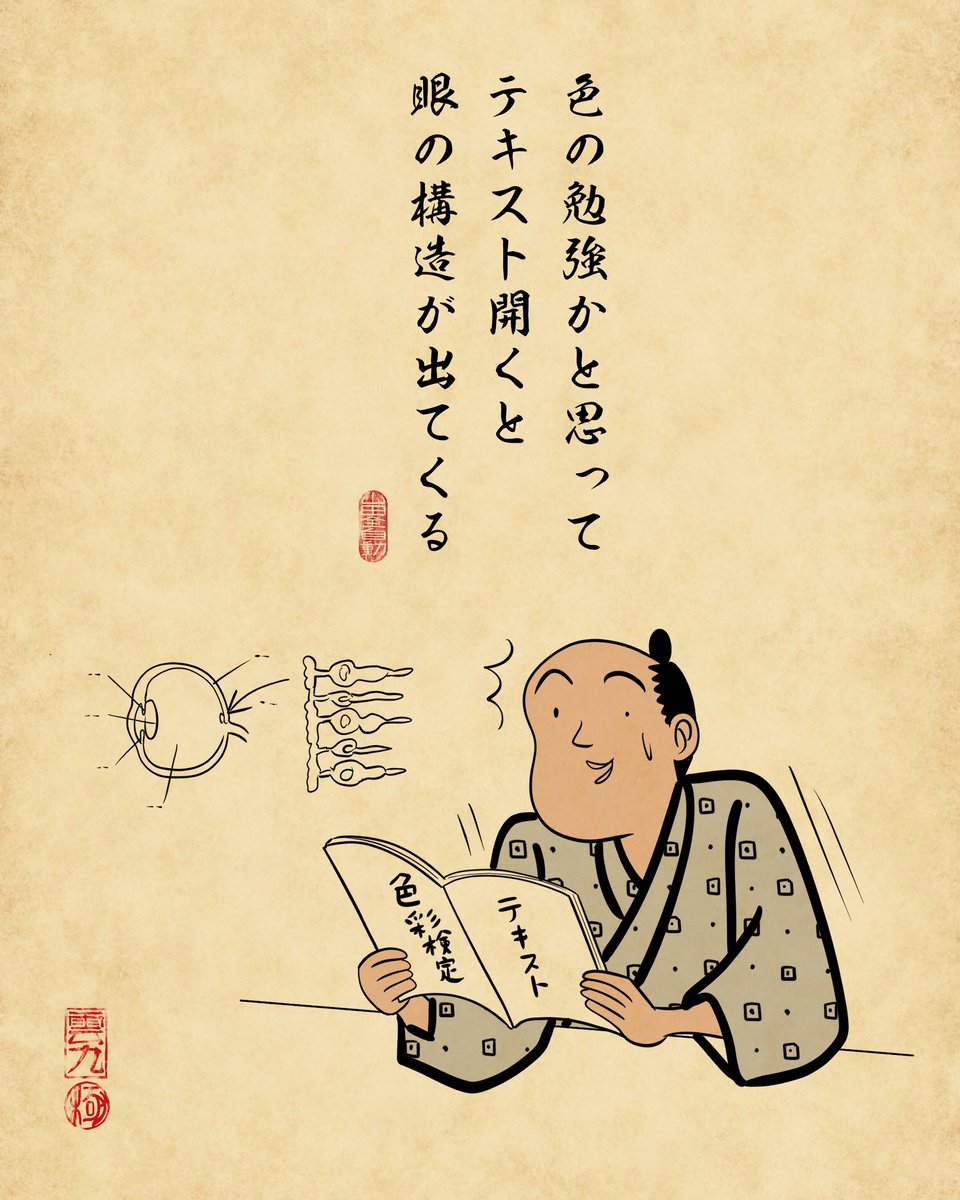 色の勉強かと思って
テキスト開くと
眼の構造が出てくる
色彩検定
テキスト